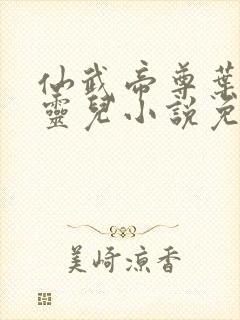 仙武帝尊葉
靈兒小說免
美崎凉香